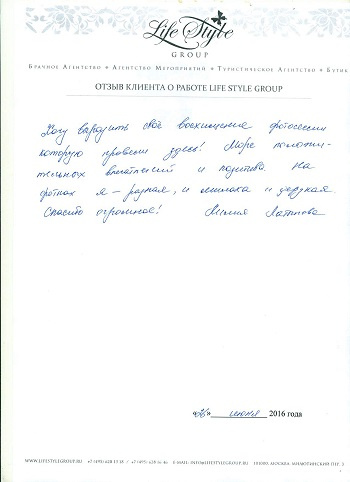 Life Style
GROUP
Брачное Агентство • Агентство Мероприятий • Туристическое Агентство • Бутик
ОТЗЫВ КЛИЕНТА О РАБОТЕ LIFE STYLE GROUP
Хочу выразить своё восхищение фотосессии
которую провели здесь! Море положи-
тельных впечатлений и позитива На
фотках я – разная, и милака и дерзкая
Спасибо огромное! Лилия
июня 2016 года
WWW.LIFESTYLEGROUP.RU E-MAIL: INFO@LIFESTYLEGROUP.RU МОСКВА